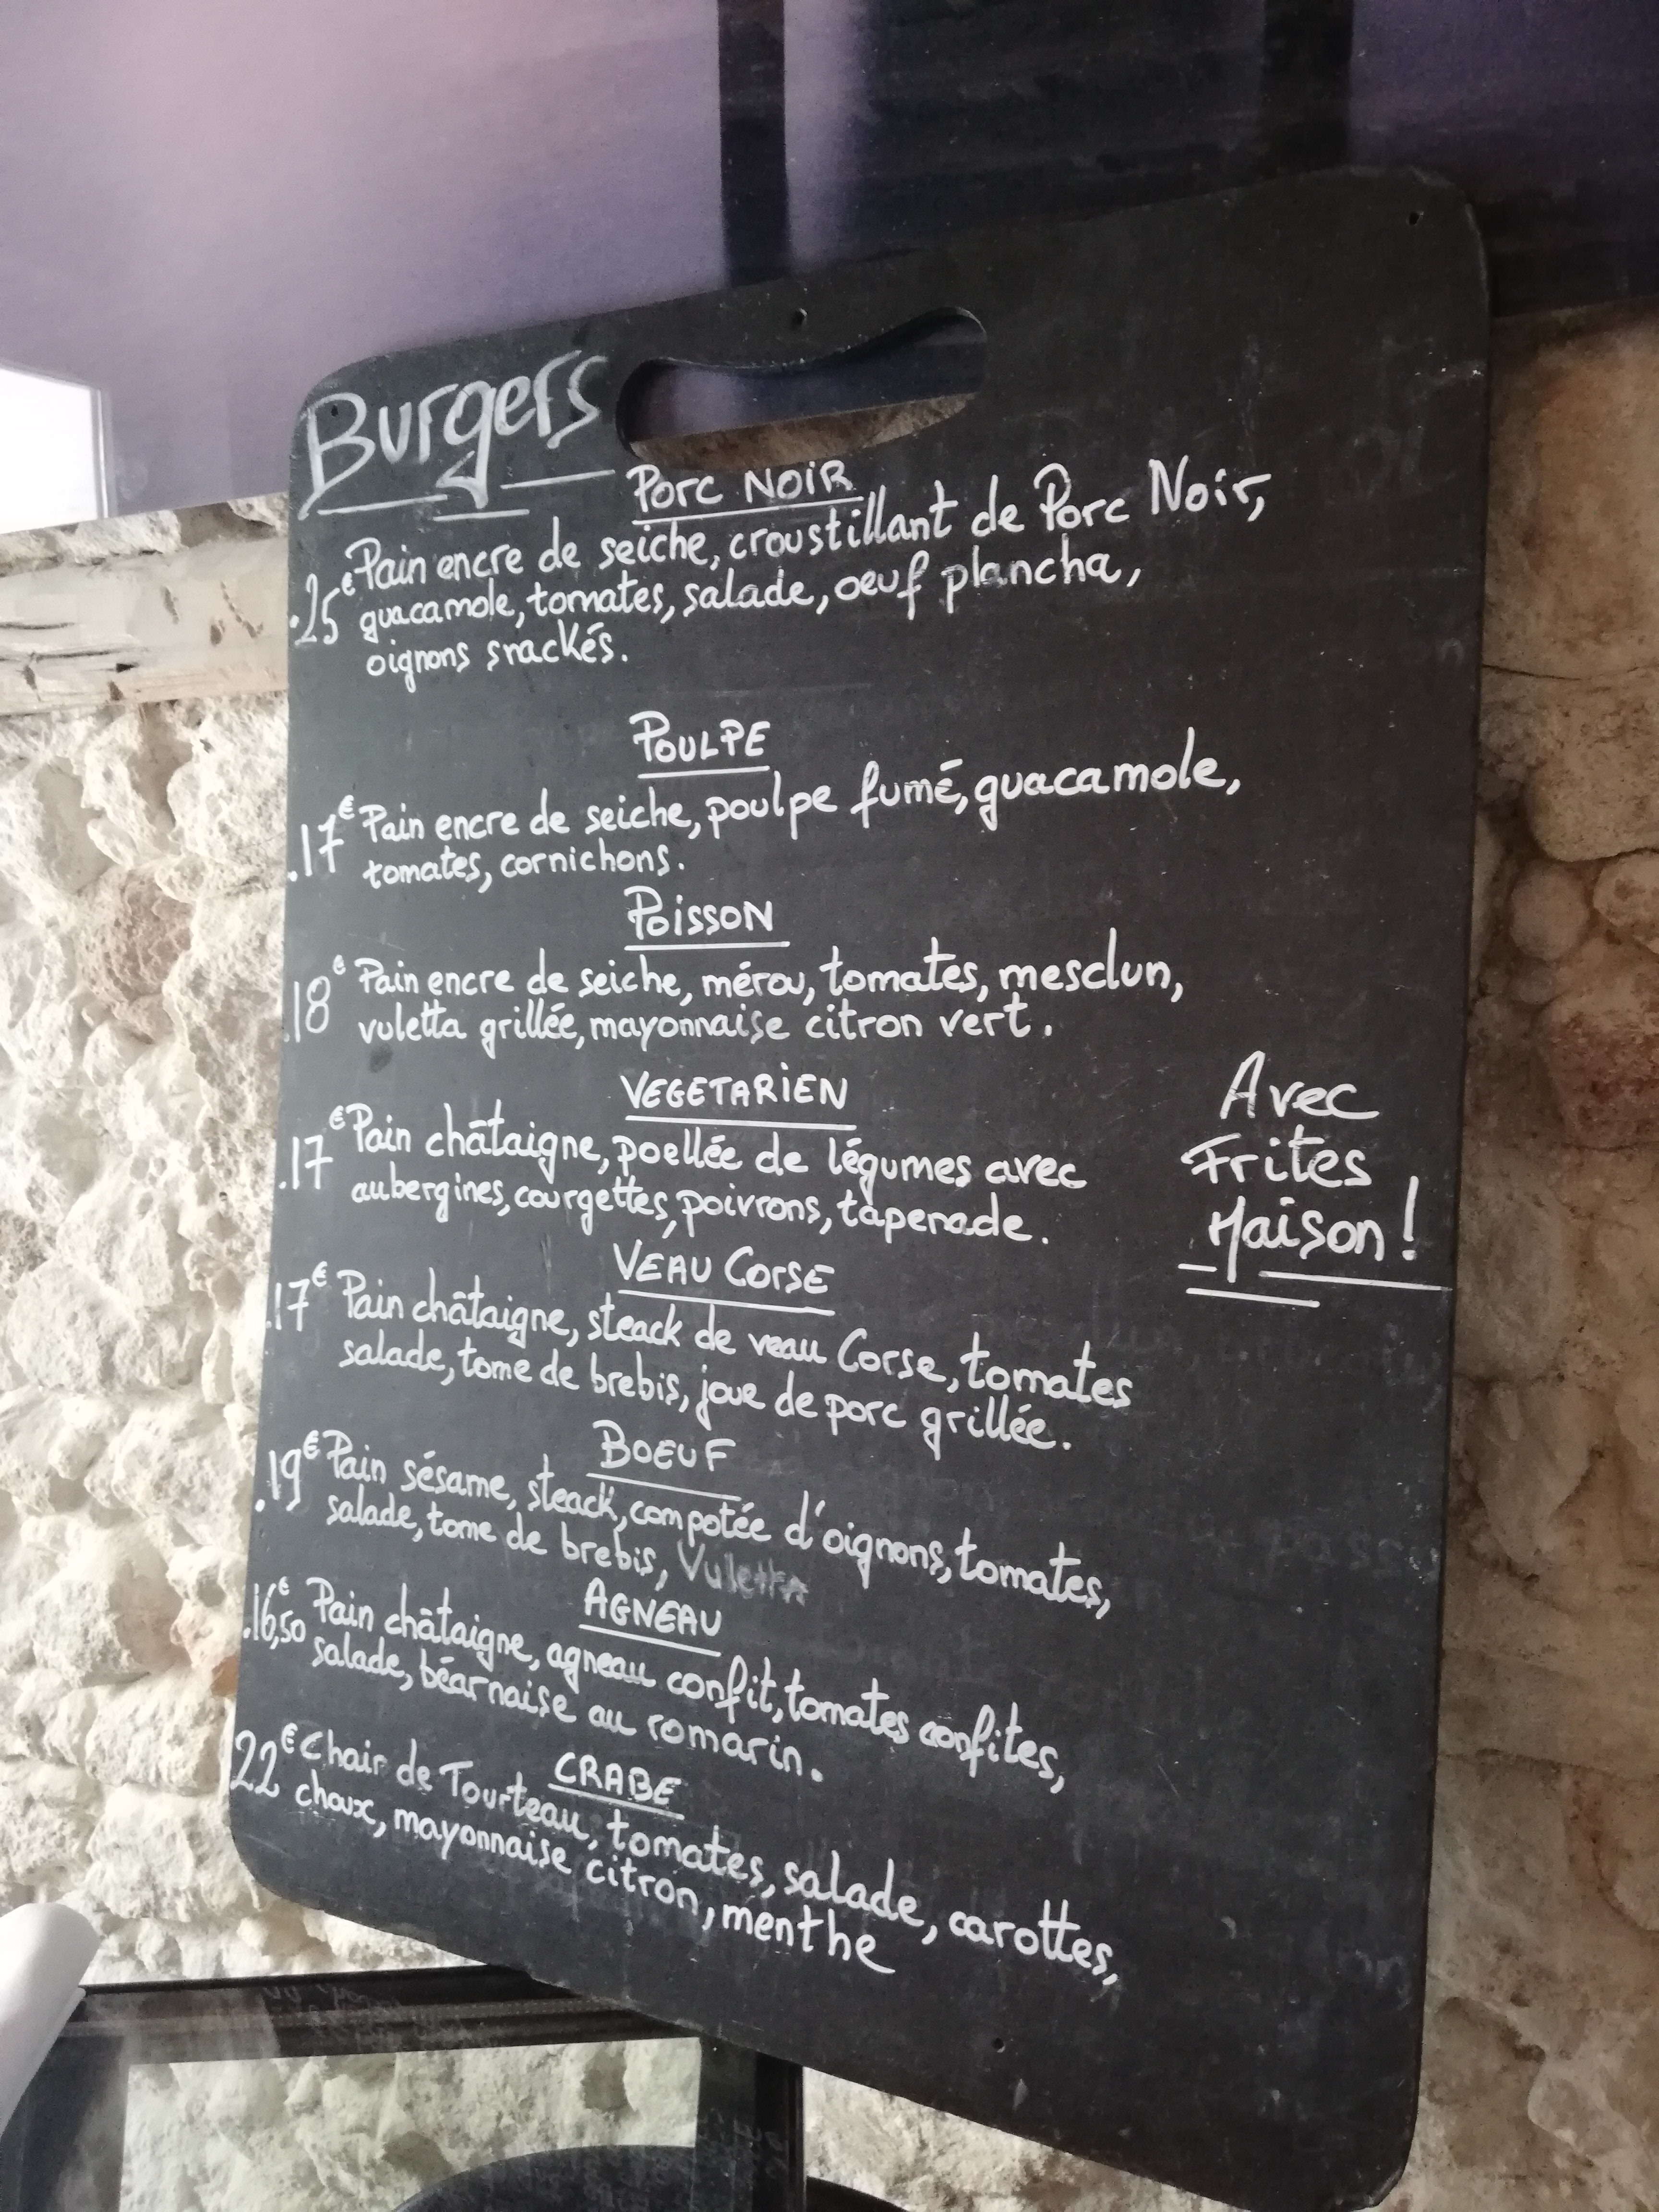 Burgers
PORC NOIR
.25€ Pain encre de seiche, croustillant de Porc Noir,
guacamole, tomates, salade, oeuf plancha,
oignons snackés.
POULPE
.17€ Pain encre de seiche, poulpe fumé, guacamole,
tomates, cornichons.
POISSON
.18€ Pain encre de seiche, mérou, tomates, mesclun,
vuletta grillée, mayonnaise citron vert.
VEGETARIEN
.17€ Pain châtaigne, poellée de légumes avec
aubergines, courgettes, poivrons, tapenade.
Avec
Frites
Maison!
VEAU CORSE
.17€ Pain châtaigne, steack de veau Corse, tomates
salade, tome de brebis, joue de porc grillée.
BOEUF
.19€ Pain sésame, steack, compotée d'oignons, tomates,
salade, tome de brebis, Vuletta
AGNEAU
.16,50€ Pain châtaigne, agneau confit, tomates confites,
salade, béarnaise au romarin.
CRABE
22€ Chair de Tourteau, tomates, salade, carottes,
choux, mayonnaise citron, menthe